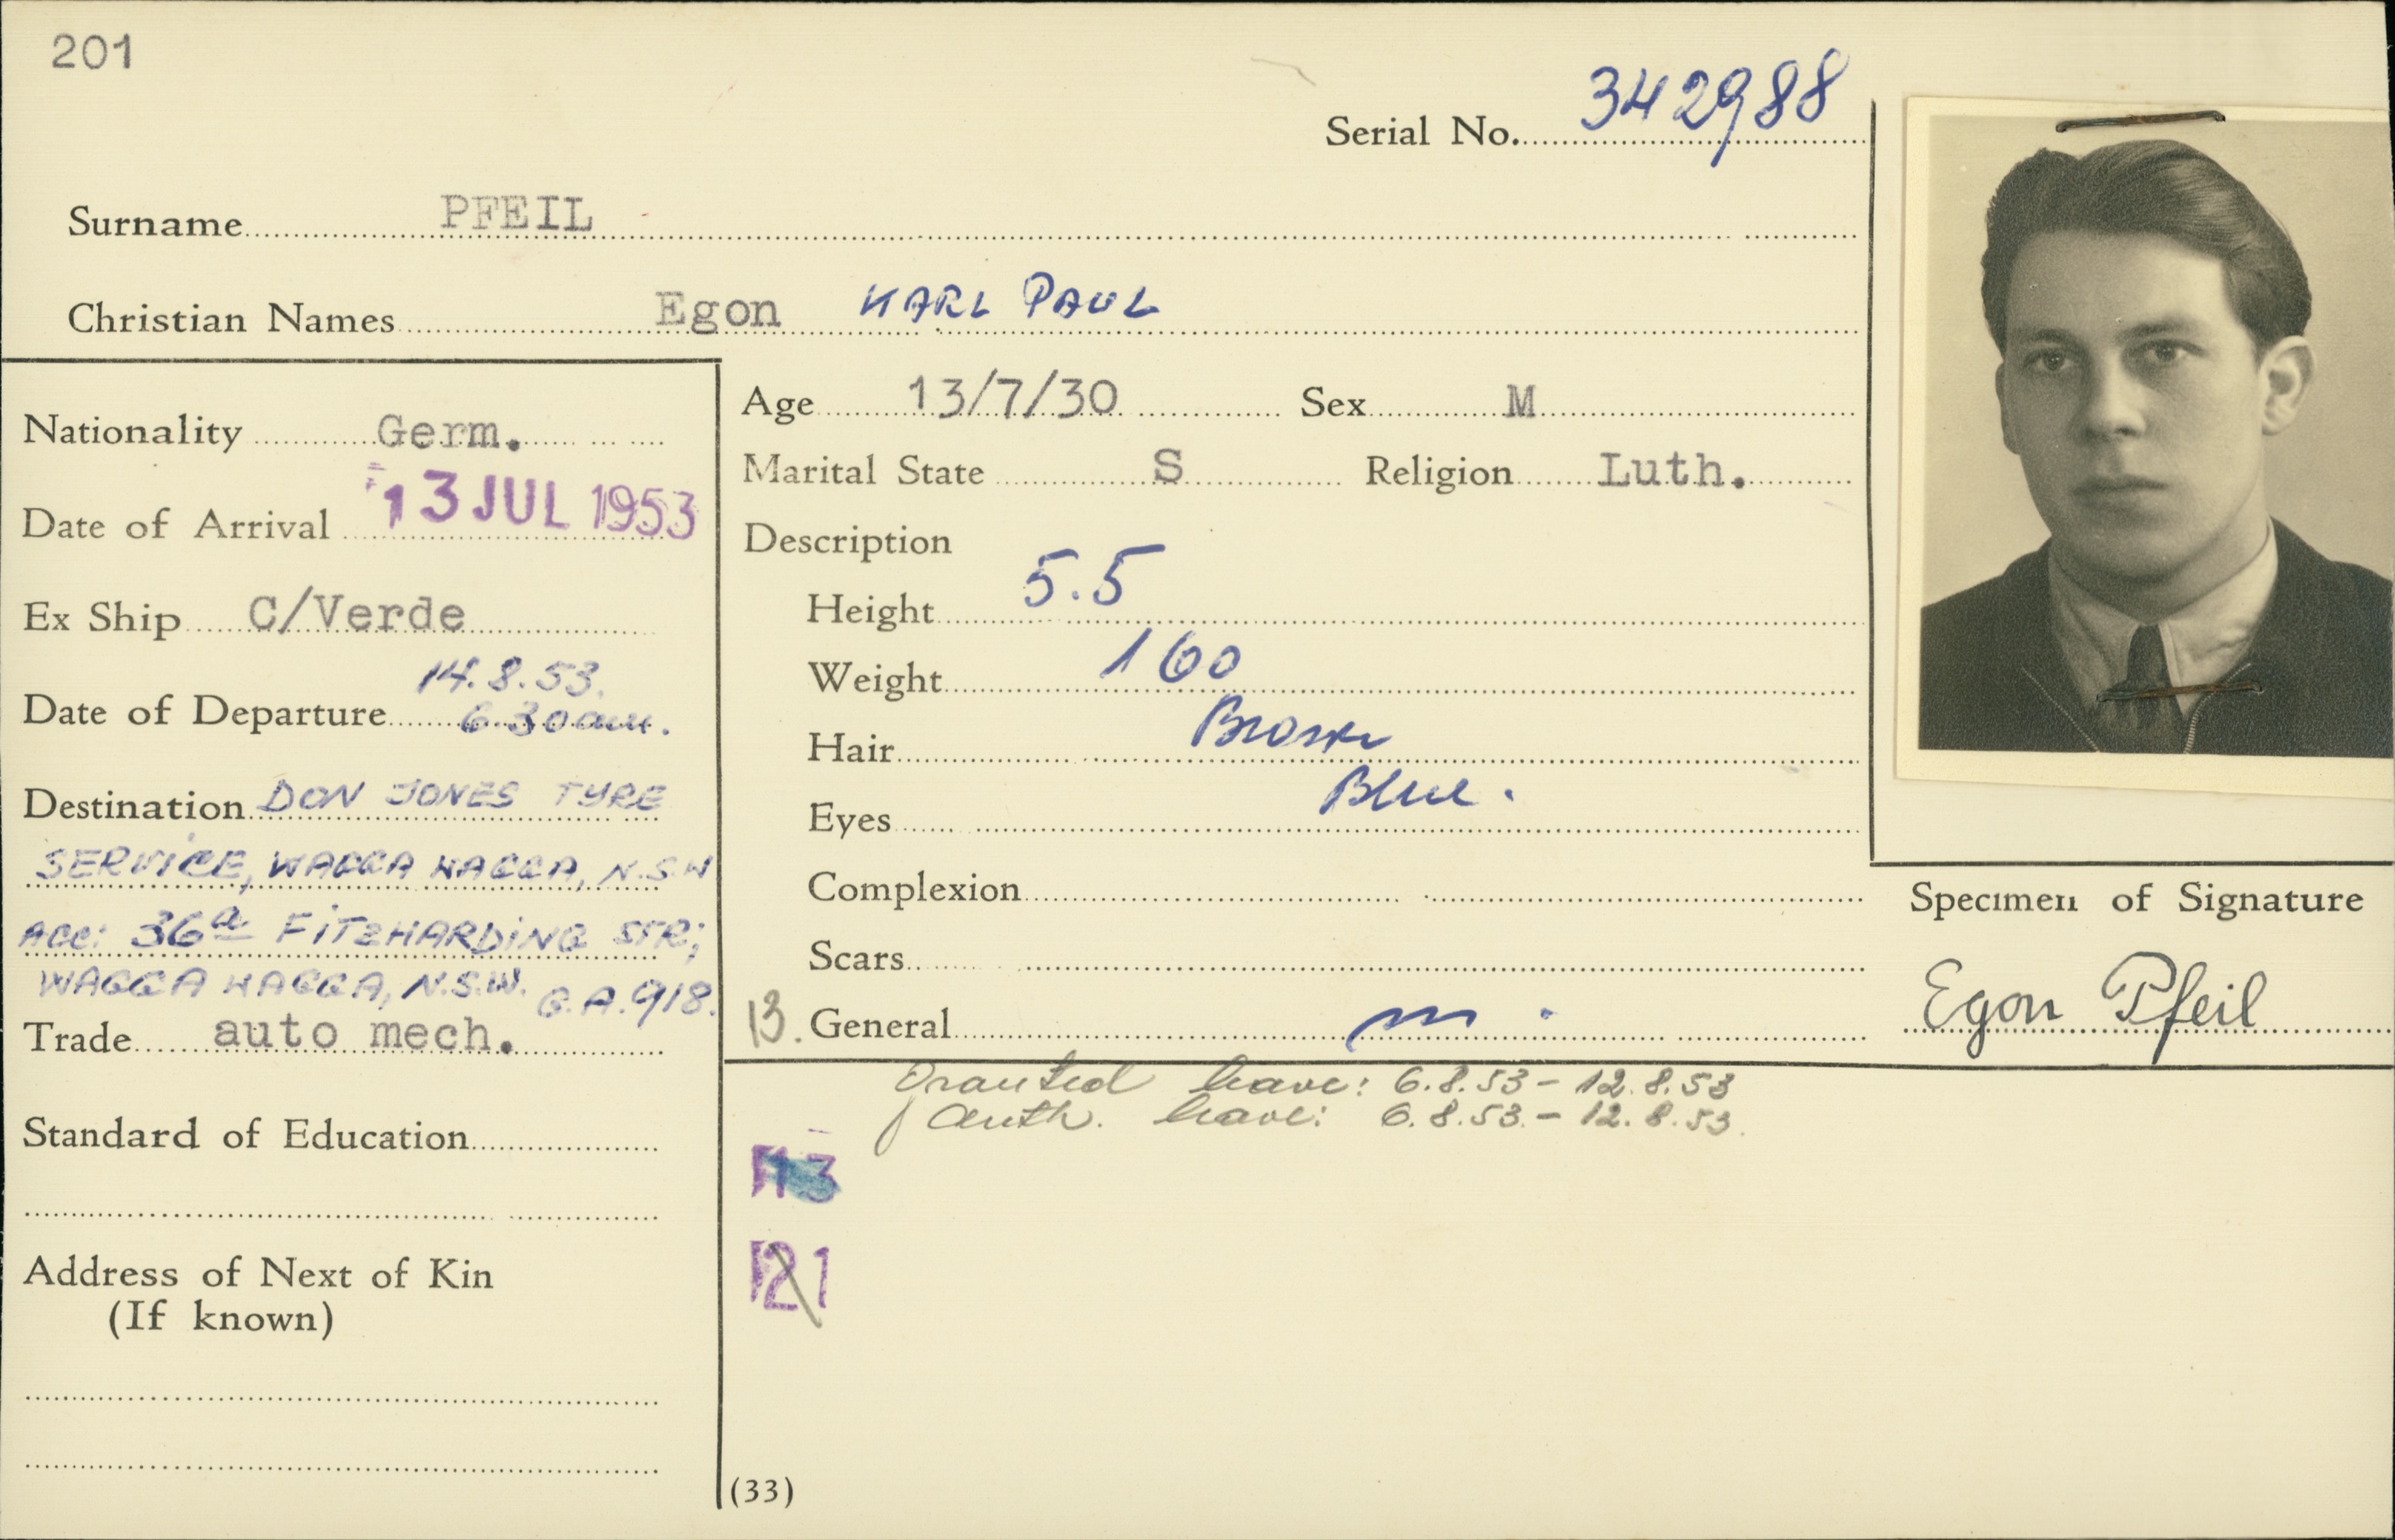 201
Serial No. 342988
Surname PFEIL
Christian Names Egon KARL PAUL
Nationality Germ.
Date of Arrival 13 JUL 1953
Ex Ship C/Verde
Date of Departure 14.8.53.
6.30am.
Destination DON JONES TYRE
SERVICE, WAGGA WAGGA, N.S.W
ACC: 36a FITZHARDING STR;
WAGGA WAGGA, N.S.W. G.A.918.
Trade auto mech.
Standard of Education
Address of Next of Kin
(If known)
Age 13/7/30 Sex M
Marital State S Religion Luth.
Description
Height 5.5
Weight 160
Hair Brown
Eyes Blue.
Complexion
Scars
13. General
Granted leave: 6.8.53 - 12.8.53
Auth. leave: 6.8.53. - 12.8.53.
13
121
(33)
Specimen of Signature
Egon Pfeil